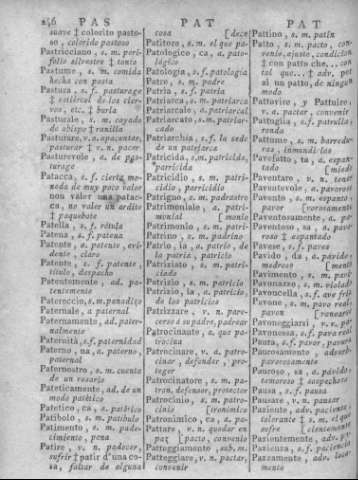 246 PAS PAT PAT
suave ‡ colorito pasto-
so, colorido pastoso
Pastricciano, s. m. peri-
folio silvestre ‡ tonto
Pastume, s. m. comida
hecha con pasta
Pastura, s. f. pasturage
‡ estiercol de los cier-
vos, etc. ‡ burla
Pasturale, s. m. cayado
de obispo ‡ ranilla
Pasturare, v. a. apacentar,
pasturar ‡ v. n. pacer
Pasturevole, a. de pas-
turage
Patacca, s. f. cierta mo-
neda de muy poco valor
non valer una patac-
ca, no valer un ardite
‡ paquebote
Patella, s. f. rótula
Patena, s. f. patena
Patente, a. patente, evi-
dente, claro
Patente, s. f. patente,
título, despacho
Patentemente, ad. pa-
tentemente
Patereccio, s. m. panadizo
Paternale, a. paternal
Paternamente, ad. pater-
nalmente
Paternità, s. f. paternidad
Paterno, na, a. paterno,
paternal
Paternostro, s. m. cuenta
de un rosario
Pateticamente, ad. de un
modo patético
Patetico, ca, a. patético
Patibolo, s. m. patíbulo
Patimento, s. m. pade-
cimiento, pena
Patire, v. n. padecer,
sufrir ‡ patir d'una co-
sa, faltar de alguna
cosa [dece
Patitore, s. m. el que pa-
Patologico, ca, a. pato-
lógico
Patologia, s. f. patologia
Patre, s. m. padre
Patria, s. f. patria
Patriarca, s. m. patriarca
Patriarcale, a. patriarcal
Patriarcato, s. m. patriar-
cado
Patriarchia, s. f. la sede
de un patriarca
Patricida, s. m. patricida,
parricida
Patricidio, s. m. patri-
cidio, parricidio
Patrigno, s. m. padrastro
Patrimoniale, a. patri-
monial [monio
Patrimonio, s. m. patri-
Patrino, s. m. padrino
Patrio, ia, a. patrio, de
la patria, patricio
Patriziato, s. m. patri-
ciado
Patrizio, s. m. patricio
Patrizio, ia, a. patricio,
de los patricios
Patrizzare, v. n. pare-
cerse á su padre, padrear
Patrocinante, a. que pa-
trocina
Patrocinare, v. a. patro-
cinar, defender, pro-
teger
Patrocinatore, s. m. pa-
tron, defensor, protector
Patrocinio, s. m. patro-
cinio [ironómico
Patronimico, ca, a. pa-
Pattare, v. n. quedar en
paz [pacto, convenio
Patteggiamento, sub. m.
Patteggiare, v. n. pactar,
convenir
Pattino, s. m. patin
Patto, s. m. pacto, con-
venio, ajuste, condicion
‡ con patto che... con
tal que...‡ adv. per
al un patto, de ningun
modo
Pattovire, y Pattuire,
v. a. pactar, convenir
Pattuglia, s. f. patrulla,
ronda
Pattume, s. m. barredu-
ras, inmundicias
Pavefatto, ta, a. espan-
tado [miedo
Paventare, v. n. tener
Paventevole, a. pavoroso
Pavento, s. m. espanto,
pavor [vorosamente
Paventosamente, a. pa-
Paventoso, sa, a. pavo-
roso ‡ espantado
Pavese, s. f. paves
Pavido, da, a. pavido,
medroso
Pavimento, s. m. pavi-
mento
Pavonazzo, s. m. violado
Pavoncella, s. f. ave fria
Pavone, s. m. pavo real,
pavon
Pavoneggiarsi, v. r.
Pavonessa, s. f. pava real
Paura, s. f. pavor, pavura
Paurosamente, adverb.
pavorosamente
Pauroso, sa, a. pavido,
temeroso ‡ sospechoso
Pausa, s. f. pausa
Pausare, v. n. pausar
Paziente, adv. paciente,
tolerante ‡ s. m. el que
sufre [cientemente
Pazientemente, adv. pa-
Pazienza, s. f. paciencia
mento